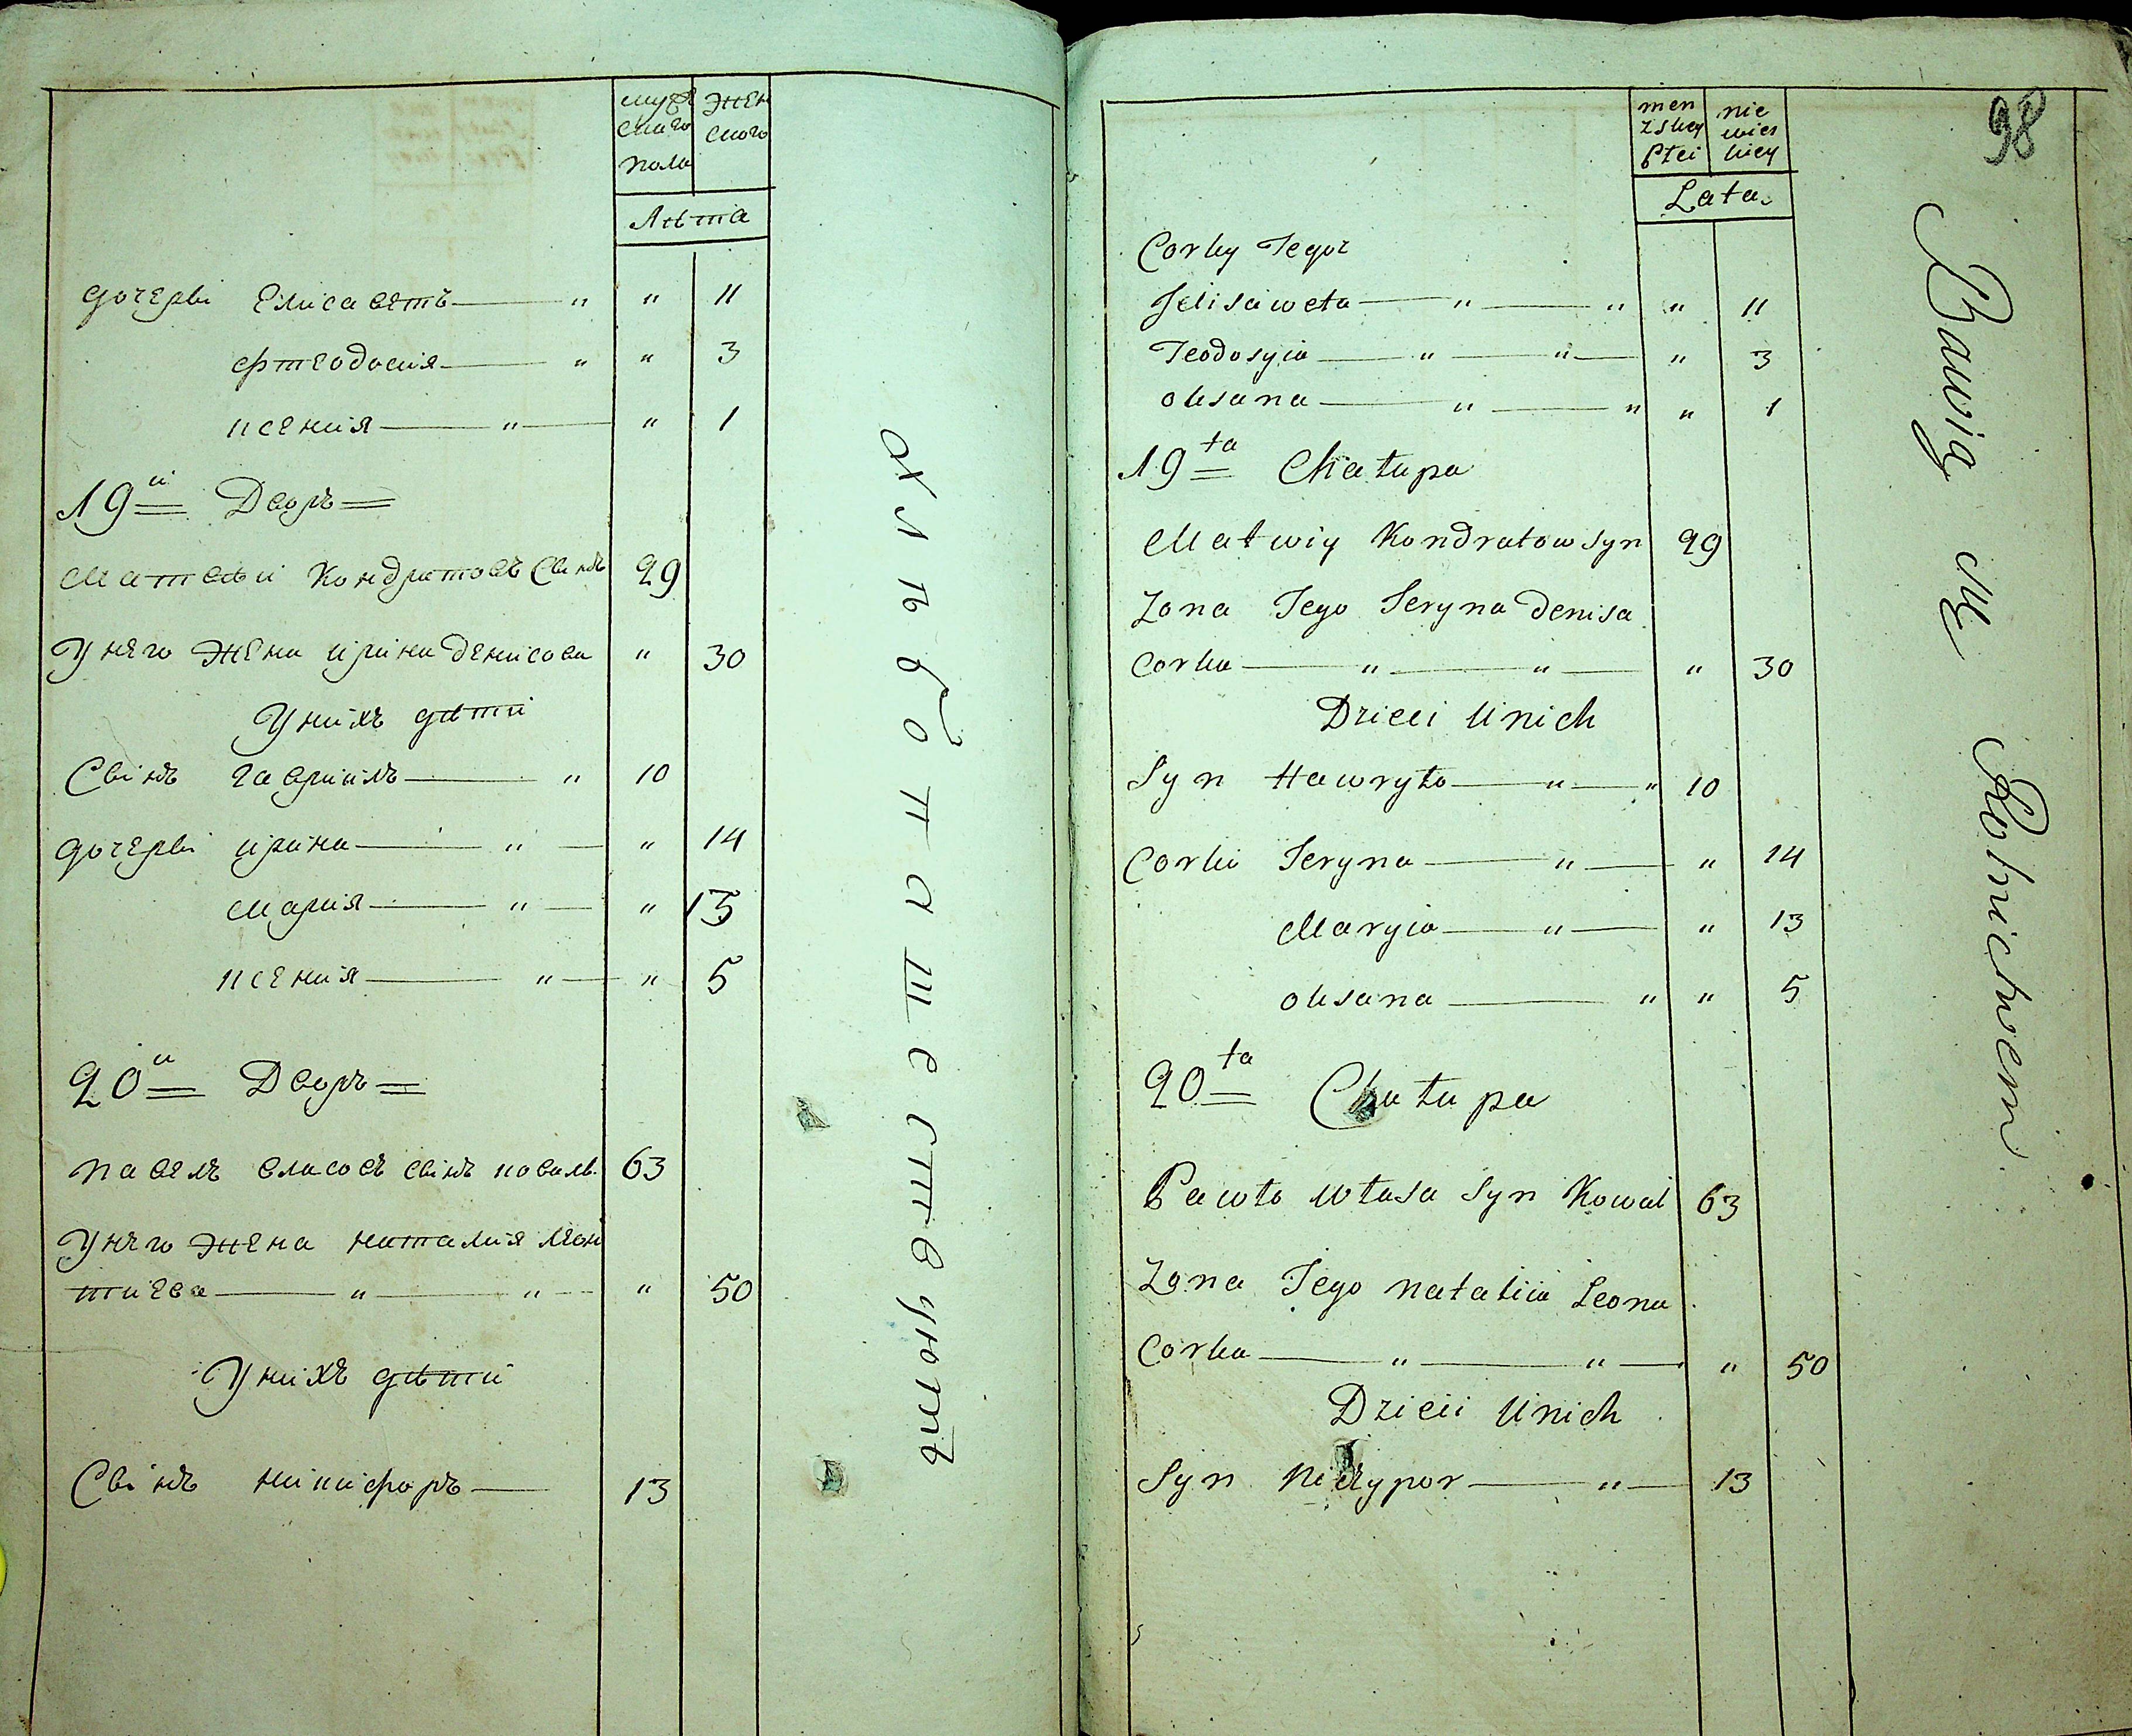 муже жен
скаго скаго
пола
Лѣта
дочеры Елисаветъ — " " 11
Фтеодосия — " " 3
ксения — " — " 1
19й Дворъ
Матвѣй Кондратовъ Сынъ 29
У него жена ирина денисова " 30
У нихъ дѣти
Сынъ гавриилъ — " 10
дочеры ирина — " — " 14
Мария — " — " 13
ксения — " — " 5
20й Дворъ
павелъ власовъ сынъ коваль. 63
У него жена наталия леон
тиева — " — " — " 50
У нихъ дѣти
Сынъ никифоръ — 13
Хлѣбопашествуютъ
98
men nie
zskey wies
Płci kiey
Lata
Corky Tegoz
Jelisaweta — " — " " 11
Teodosyia — " — " — " 3
oksana — " — " " 1
19ta Chałupa
Matwiy Kondratow syn 29
Zona Jego Jeryna Denisa
Corka — " — " — " 30
Dzieci Unich
Syn Hawryło — " — " 10
Corki Jeryna — " — " 14
Maryia — " — " 13
oksana — " " 5
20ta Chałupa
Pawło Własa Syn Kowal 63
Zona Jego nataliia Leona
Corka — " — " — " 50
Dzieii Unich
Syn Nekypor — " — 13
Bawią się Rolnictwem